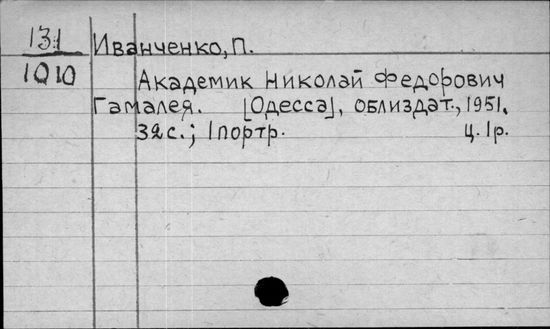 131 Иванченко, П.
1010
Академик Николай Федорович
Гамалея. [Одесса], облиздат., 1951.
32с.; 1портр. ц. 1р.